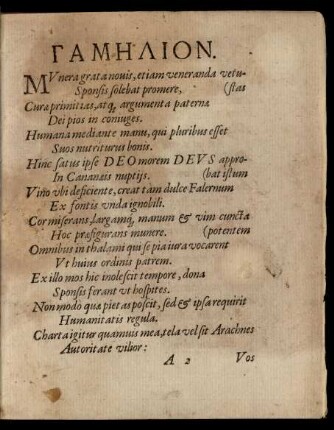 ΓΑΜΗΛΙΟΝ.
MVnera grata nouis, etiam veneranda vetu-
Sponsis solebat promere, (stas
Curæ primitias, atq, argumenta paternæ
Dei pios in coniuges.
Humana mediante manu, qui pluribus esset
Suos nutriturus bonis.
Hinc satus ipse DEO morem DEVS appro-
In Cananæis nuptijs. (bat istum
Vino vbi deficiente, creat tam dulce Falernum
Ex fontis vnda ignobili.
Cor miserans, largamq, manum & vim cuncta
Hoc præsigurans munere. (potentem
Omnibus in thalami qui se pia iura vocarent
Vt huius ordinis patrem.
Ex illo mos hic inolescit tempore, dona
Sponsis ferant vt hospites.
Non modo quæ pietas poscit, sed & ipsa requirit
Humanitatis regula.
Charta igitur quamuis mea, tela vel sit Arachnes
Autoritate vilior:
A 2 Vos